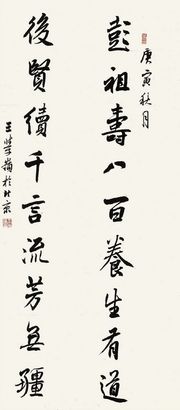 庚寅秋月
彭祖壽八百養生有道
後賢續千言流芳無疆
於北京